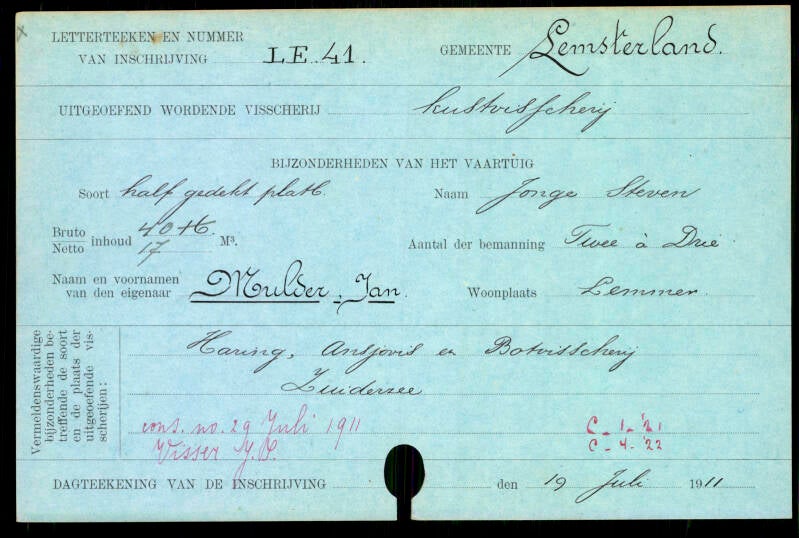 LETTERTEEKEN EN NUMMER
VAN INSCHRIJVING LE.41.
GEMEENTE Lemsterland.
UITGEOEFEND WORDENDE VISSCHERIJ kustvisscherij
BIJZONDERHEDEN VAN HET VAARTUIG
Soort half gedekt platb. Naam Jonge Steven
Bruto 40 H.
Netto inhoud 17 M³. Aantal der bemanning Twee à Drie
Naam en voornamen
van den eigenaar Mulder, Jan. Woonplaats Lemmer
Vermeldenswaardige
bijzonderheden be-
treffende de soort
en de plaats der
uitgeoefende vis-
scherijen:
Haring, Ansjovis en Botvisscherij
Zuiderzee
cons. no. 29 Juli 1911
C - 1 - '21
Visser
C - 4 - '22
DAGTEEKENING VAN DE INSCHRIJVING den 19 Juli 1911